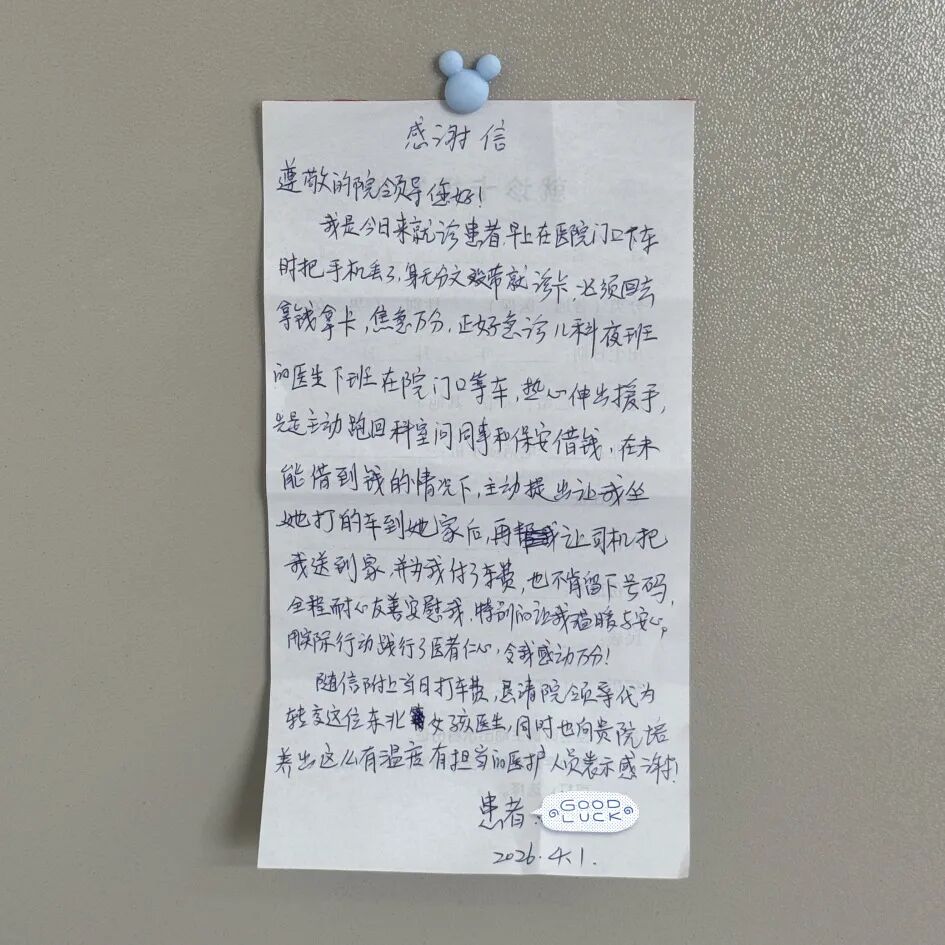 感谢信
尊敬的院领导您好!
我是今日来就诊患者,早上在医院门口下车
时把手机丢了,身无分文没带就诊卡,必须回去
拿钱拿卡,焦急万分,正好急诊儿科夜班
的医生下班在院门口等车,热心伸出援手,
先是主动跑回科室问同事和保安借钱,在未
能借到钱的情况下,主动提出让我坐
她打的车到她家后,再让司机把
我送到家,并为我付了车费,也不肯留下号码,
全程耐心友善安慰我,特别的让我温暖与安心,
用实际行动践行了医者仁心,令我感动万分!
随信附上当日打车费,恳请院领导代为
转交这位东北女孩医生,同时也向贵院培
养出这么有温度有担当的医护人员表示感谢!
患者:
GOOD
LUCK
2026.4.1.
就诊卡